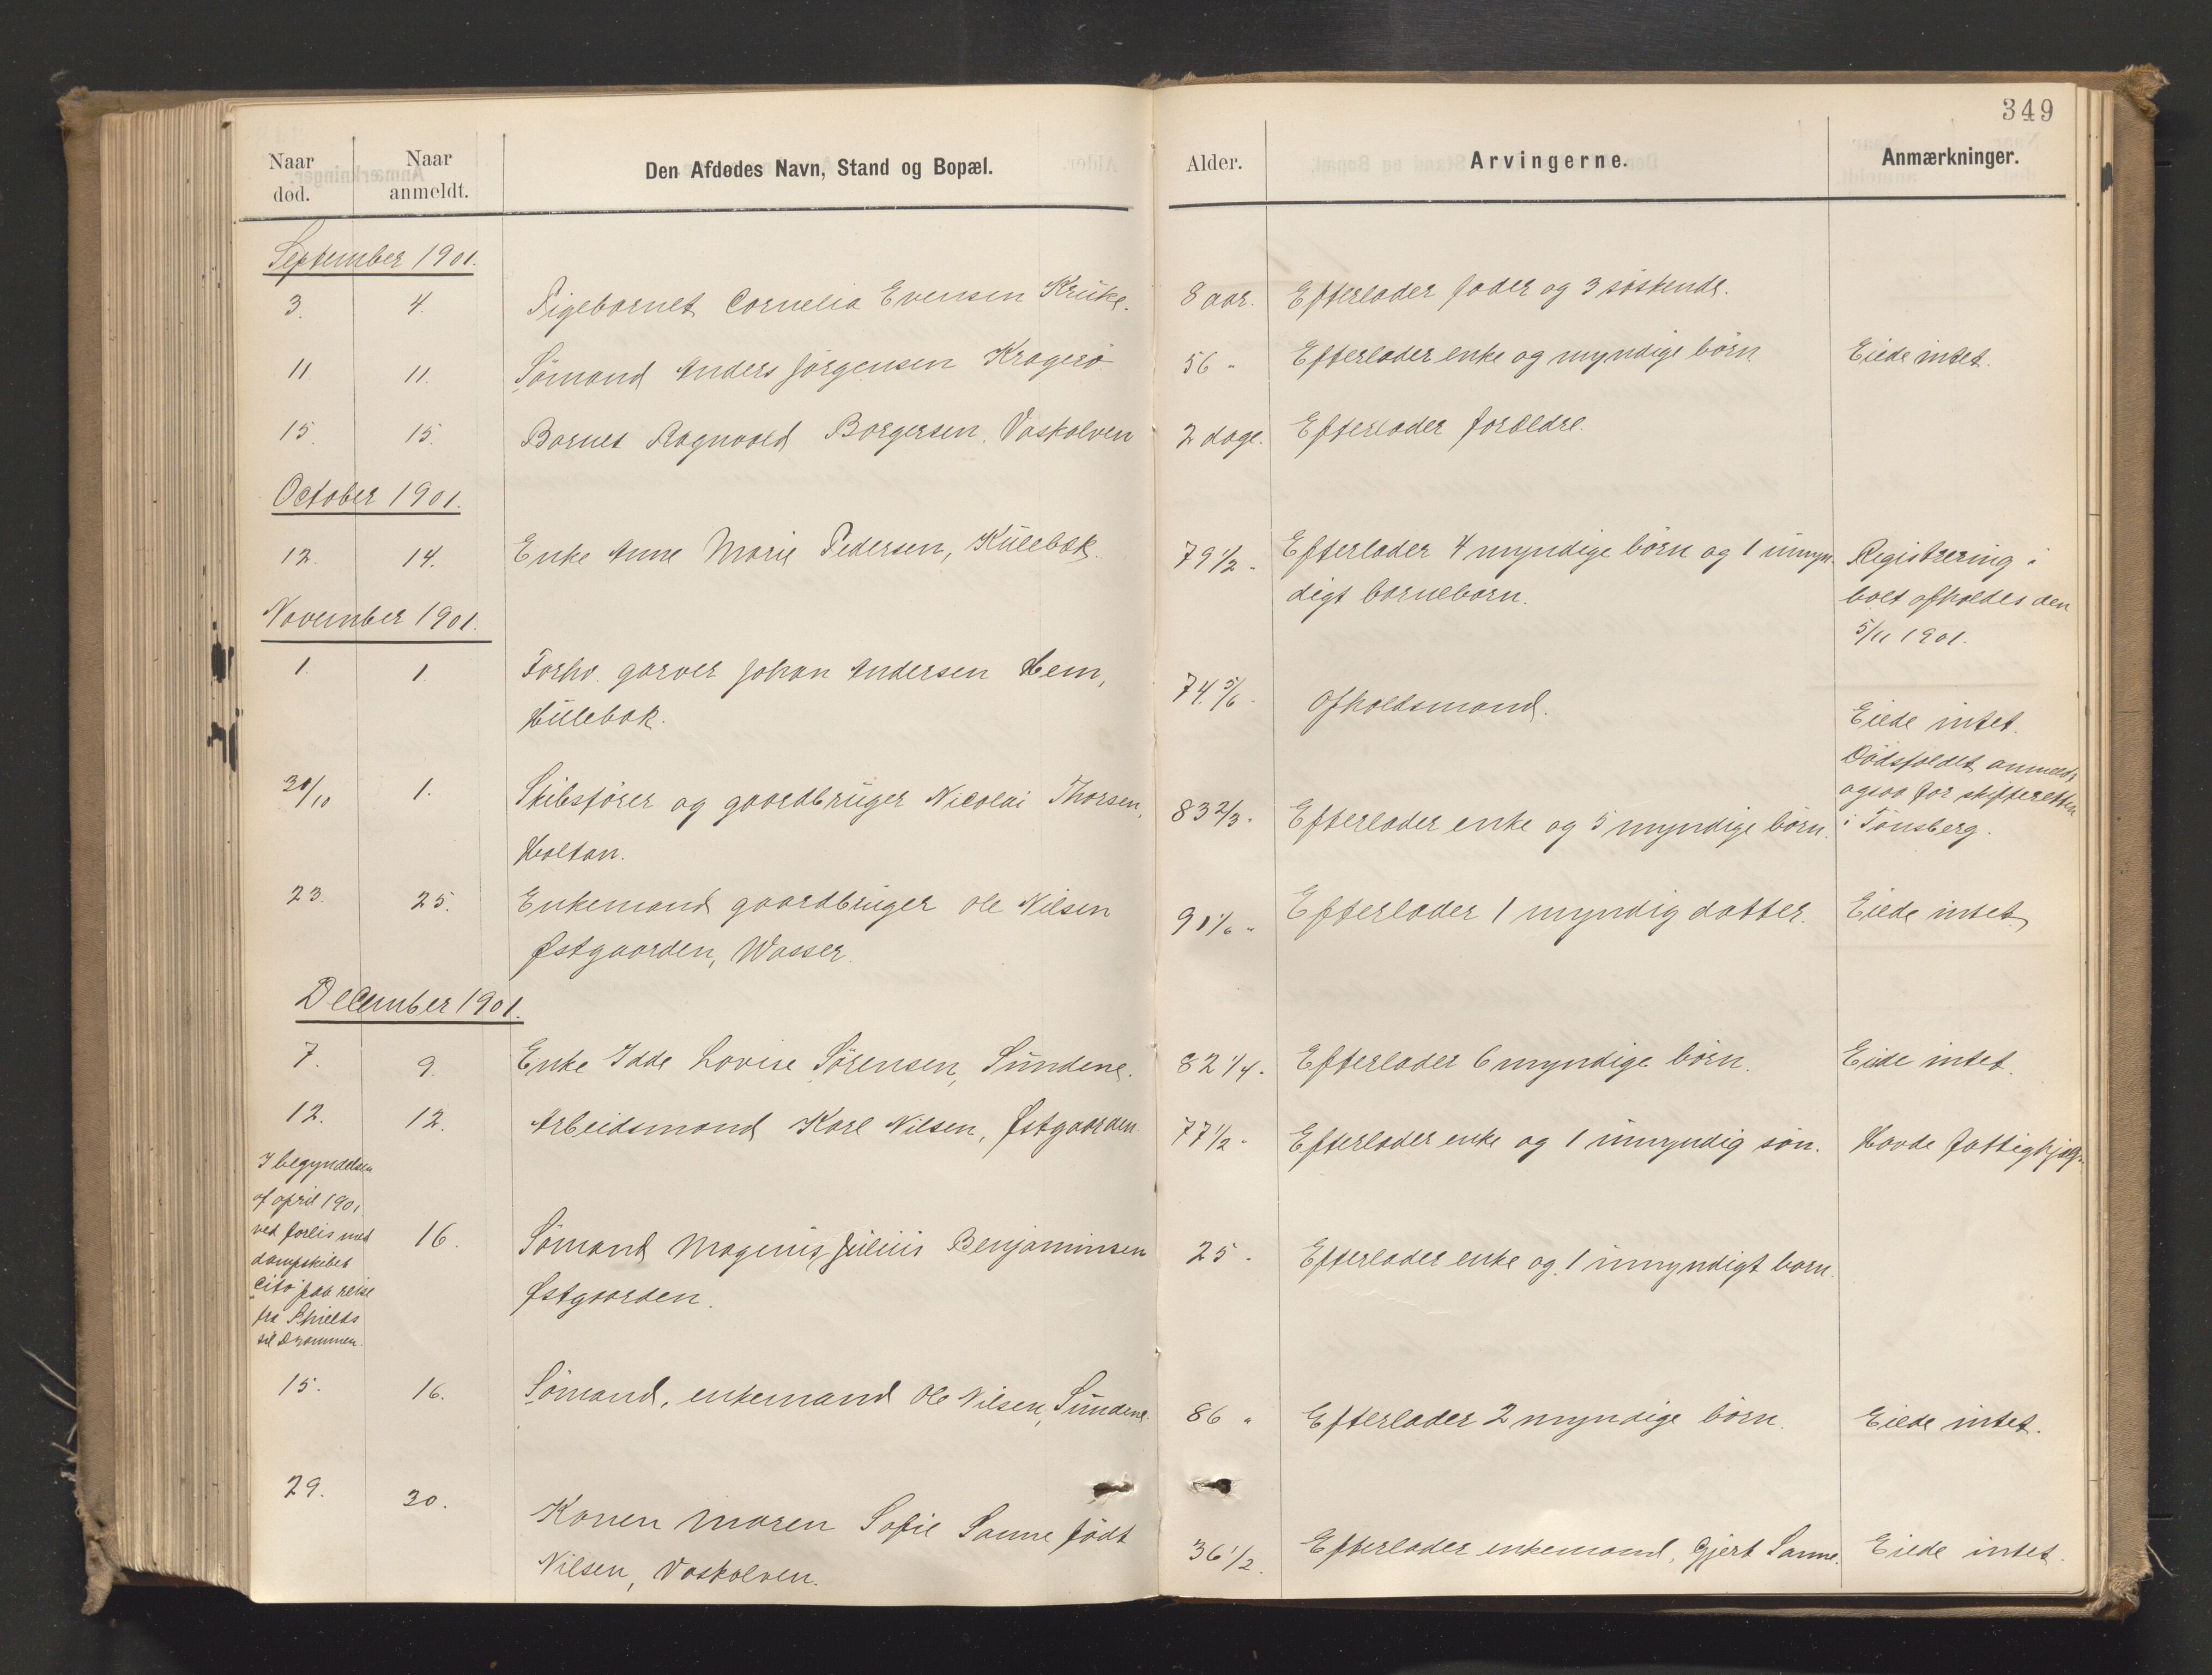 349
Naar død. Naar anmeldt. Den Afdødes Navn, Stand og Bopæl. Alder. Arvingerne. Anmærkninger.
September 1901.
3. 4. Pigebarnet Cornelia Evensen Kruke. 8 aar. Efterlader fader og 3 søskende.
11. 11. Sømand Anders Jørgensen Kragerø 56 " Efterlader enke og myndige børn Eiede intet.
15. 15. Barnet Ragnvald Borgersen, Vaskalven 2 dage. Efterlader forældre.
October 1901.
12. 14. Enke Anne Marie Pedersen, Hulebak. 79 1/2 " Efterlader 4 myndige børn og 1 umyn- Registrering i
digt barnebarn. boet afholdes den
5/11 1901.
November 1901.
1. 1. Forhv. garver Johan Andersen Hem, 74 5/6 " Afholdsmand.
Hulebak. Eiede intet.
Dødsfaldet anmeldt
ogsaa for skifteretten
30/10 1. Skibsfører og gaardbruger Nicolai Thorsen, 83 2/3 " Efterlader enke og 5 myndige børn. i Tønsberg.
Holtan.
23. 25. Enkemand gaardbruger Ole Nilsen 90 1/6 " Efterlader 1 myndig datter. Eiede intet.
Østgaarden, Wasser.
December 1901.
7. 9. Enke Idde Lovise Sørensen, Sundene. 82 1/4 " Efterlader 6 myndige børn. Eide intet.
12. 12. Arbeidsmand Karl Nilsen, Østgaarden 77 1/2 " Efterlader enke og 1 umyndig søn. Havde fattighjælp.
I begyndelsen
af april 1901
ved forlis med
dampskibet
"Cito" paa reise
fra Shields
til Drammen.
16. Sømand Magnus Julius Benjaminsen 25 " Efterlader enke og 1 umyndigt barn.
Østgaarden.
15. 16. Sømand, enkemand Ole Nilsen, Sundene. 86 " Efterlader 2 myndige børn. Eiede intet.
29. 30. Konen Maren Sofie Sanne født 36 1/2. Efterlader enkemand, Gjert Sanne. Eiede intet.
Nilsen, Vaskalven.